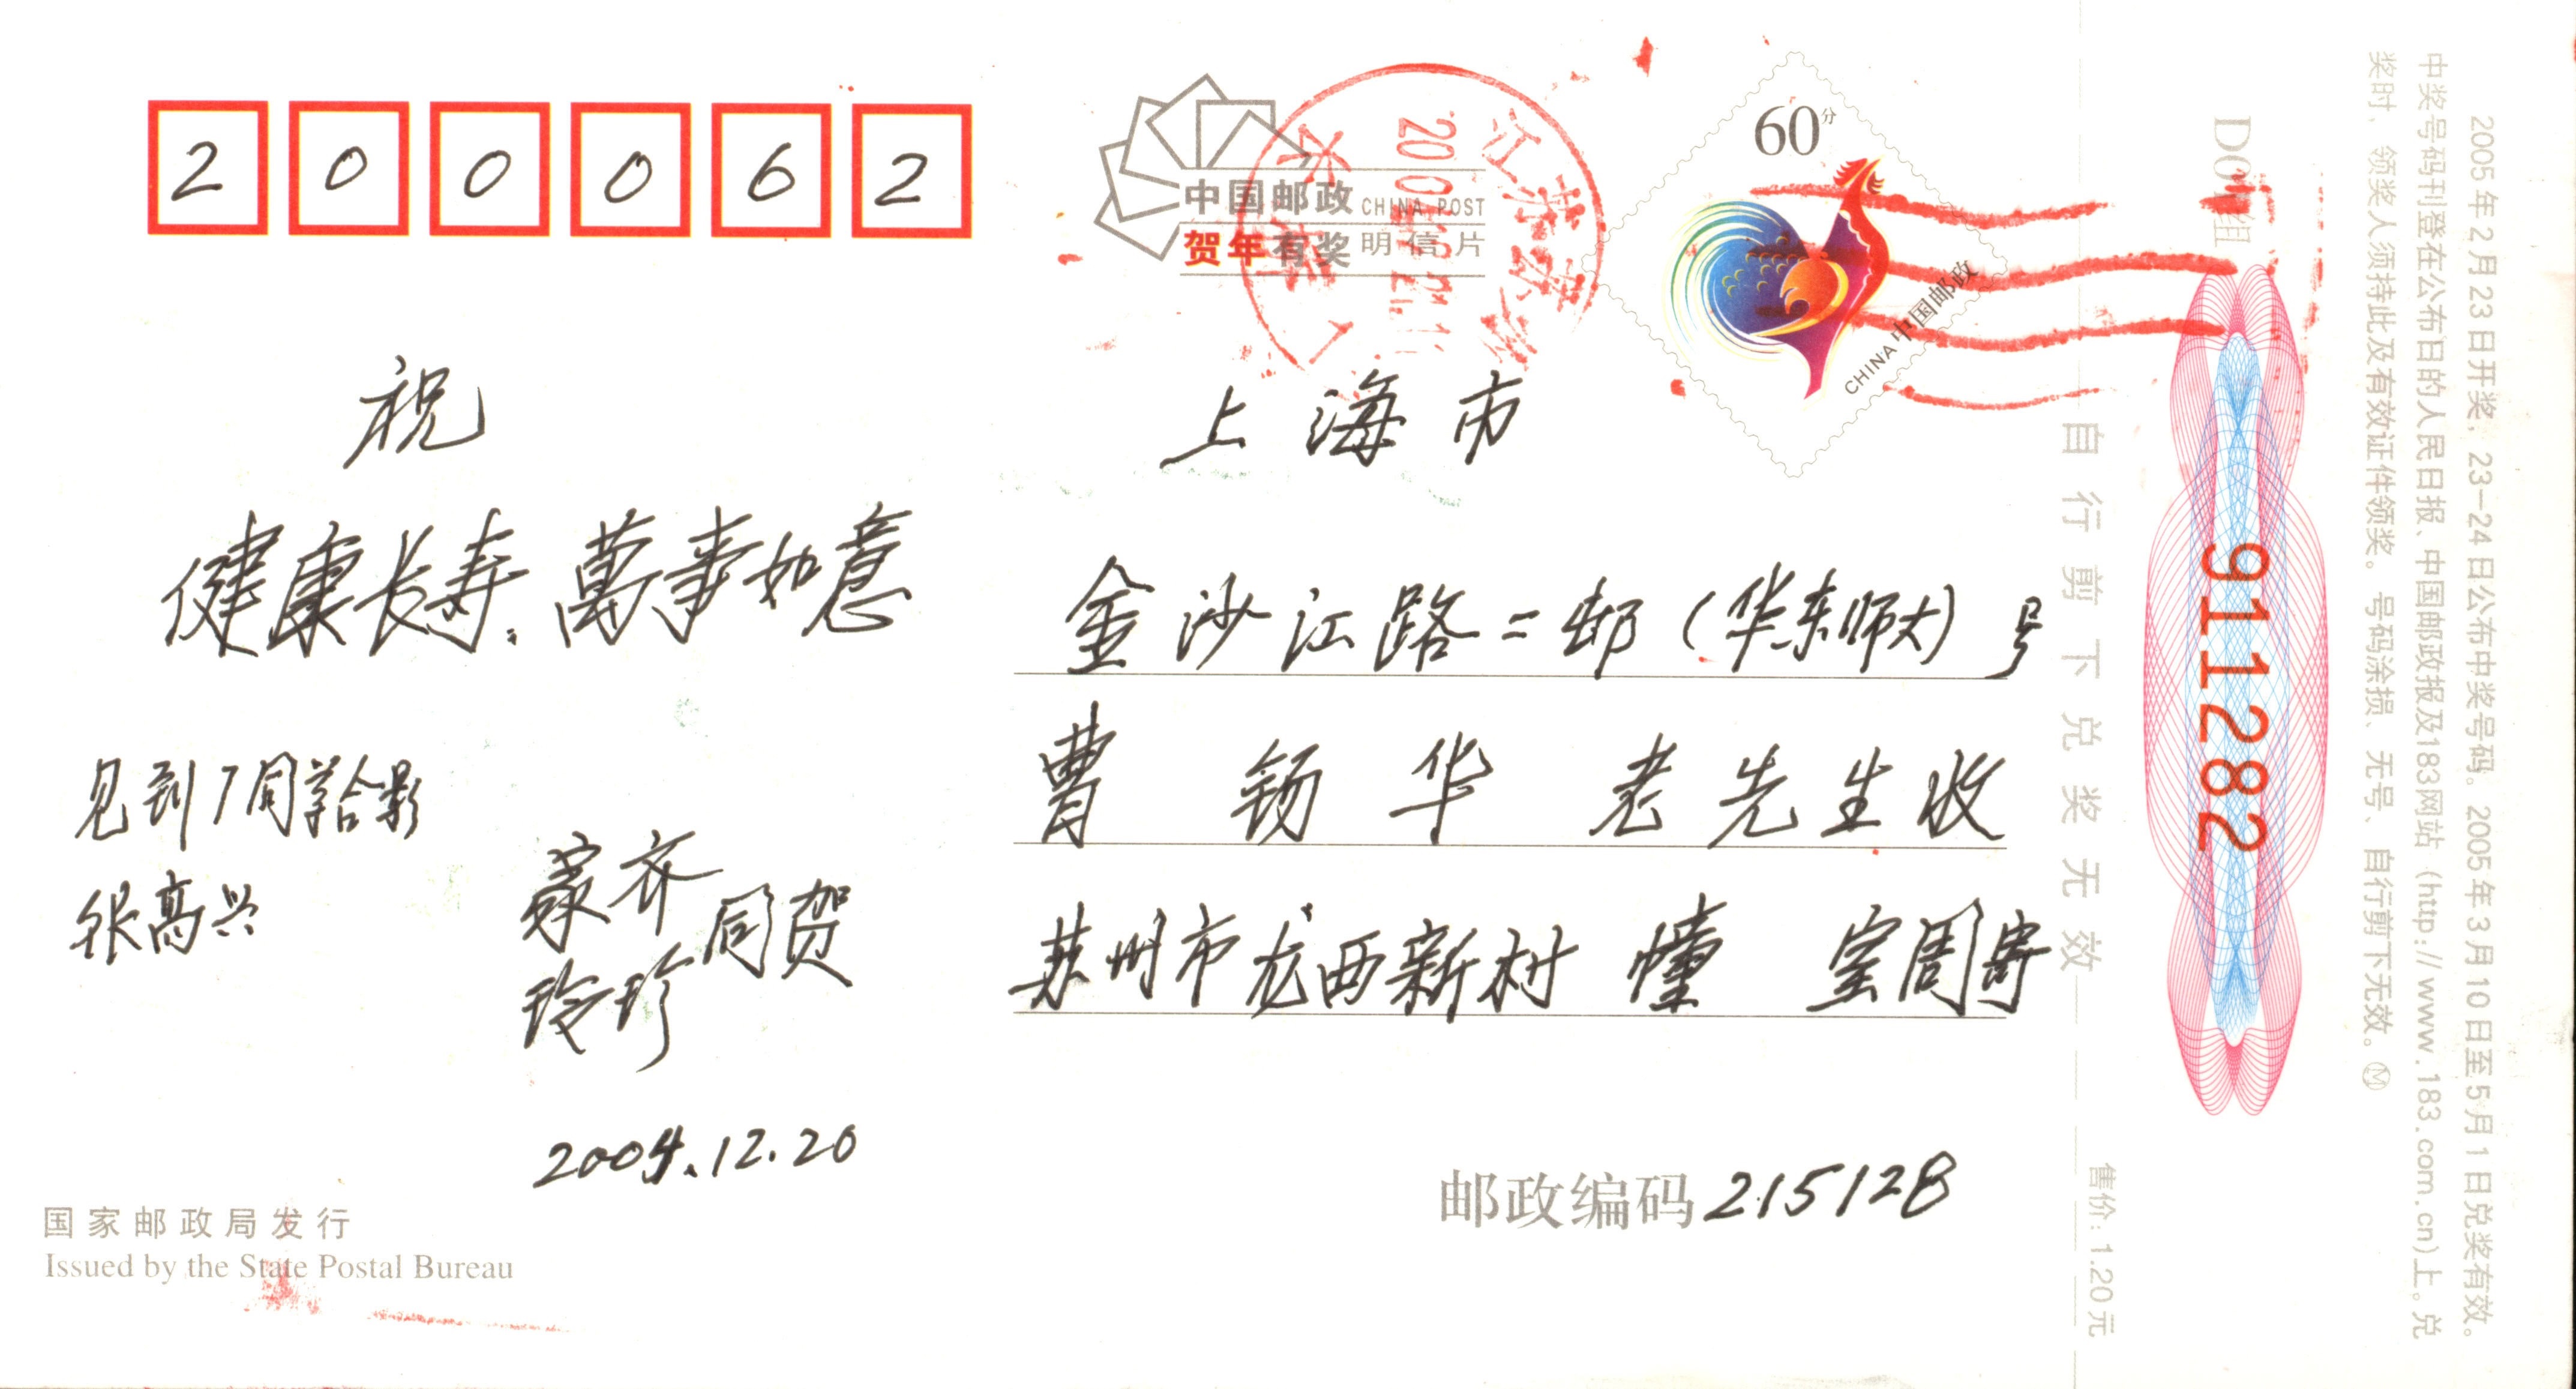 200062
中国邮政 CHINA POST
贺年有奖明信片
60分
中国邮政
CHINA
江苏苏
祝
健康长寿.萬事如意
见到了同学合影
很高兴
家齐
玲珍
同贺
2004.12.20
国家邮政局发行
Issued by the State Postal Bureau
上海市
金沙江路二邨(华东师大) 号
曹 钖华 老先生收
苏州市龙西新村 幢 室周寄
邮政编码215128
自行剪下兑奖无效
售价:1.20元
911282
2005年2月23日开奖,23-24日公布中奖号码。2005年3月10日至5月1日兑奖有效。
中奖号码刊登在公布日的人民日报、中国邮政报及183网站(http://www.183.com.cn)上。兑
奖时、领奖人须持此及有效证件领奖。号码涂损、无号、自行剪下无效。Ⓜ